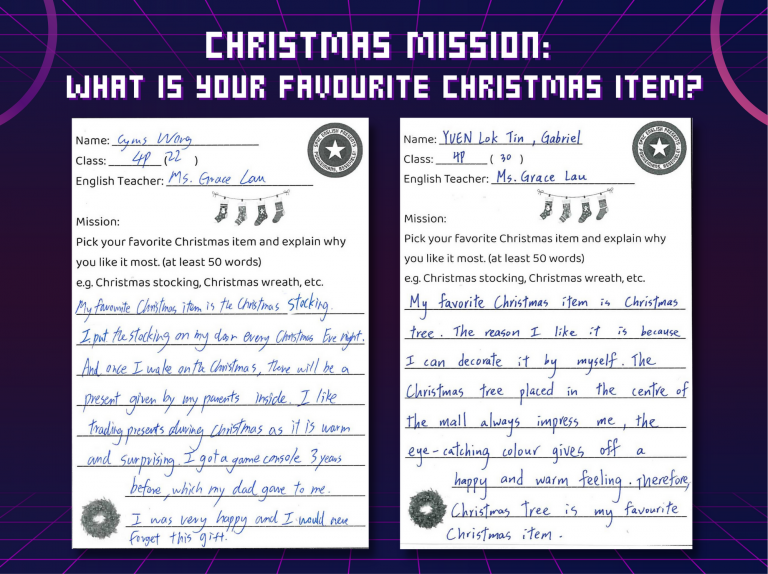 CHRISTMAS MISSION:
WHAT IS YOUR FAVOURITE CHRISTMAS ITEM?
Name: Cyrus Wong
Class: 4P (22 )
English Teacher: Ms. Grace Lau
Mission:
Pick your favorite Christmas item and explain why
you like it most. (at least 50 words)
e.g. Christmas stocking, Christmas wreath, etc.
My favourite Christmas item is the Christmas stocking.
I put the stocking on my door every Christmas Eve night.
And once I wake on the Christmas, there will be a
present given by my parents inside. I like
trading presents during Christmas as it is warm
and surprising. I got a game console 3 years
before, which my dad gave to me.
I was very happy and I would
forget this gift.
Name: YUEN Lok Tin , Gabriel
Class: 4P ( 30 )
English Teacher: Ms. Grace Lau
Mission:
Pick your favorite Christmas item and explain why
you like it most. (at least 50 words)
e.g. Christmas stocking, Christmas wreath, etc.
My favorite Christmas item is Christmas
tree. The reason I like it is because
I can decorate it by myself. The
Christmas tree placed in the centre of
the mall always impress me, the
eye-catching colour gives off a
happy and warm feeling. Therefore,
Christmas tree is my favourite
Christmas item.